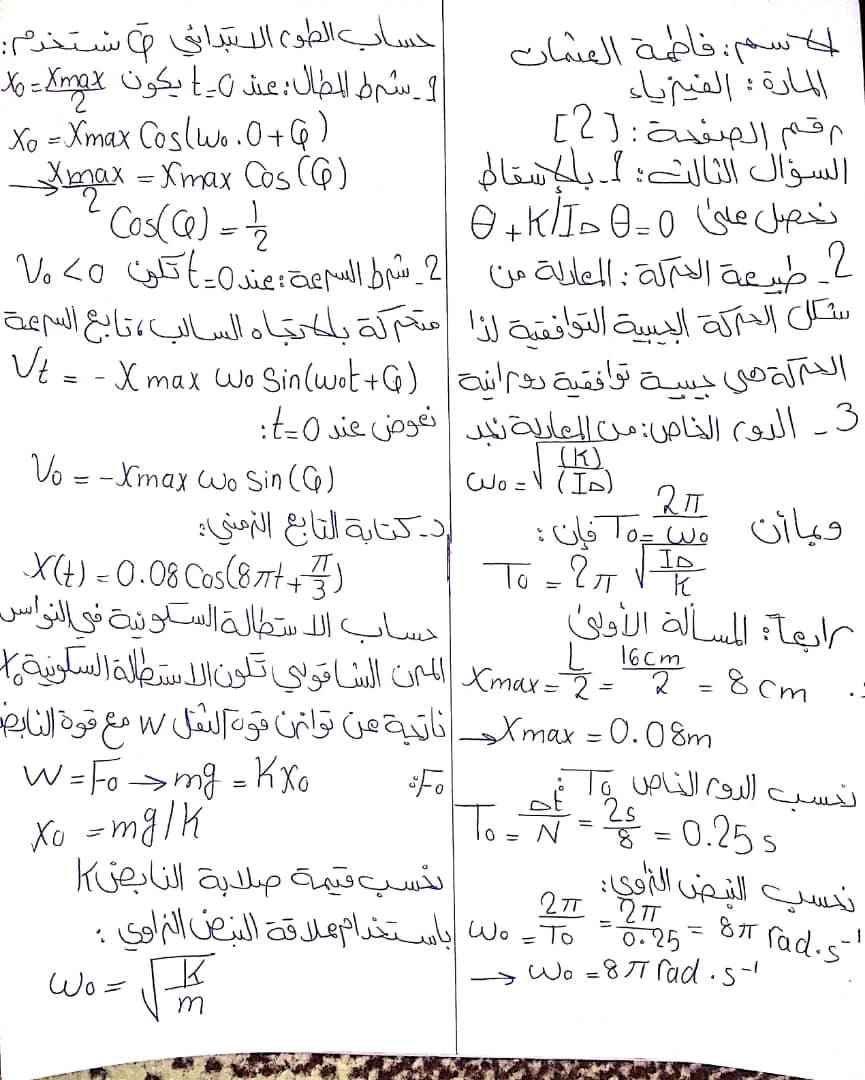 الاسم: فاطمة العثمان
المادة: الفيزياء
رقم الصفحة: [2]
السؤال الثالث: 1- بالإسقاط
نحصل على θ + K/I∆ θ = 0
2- طبيعة الحركة: المعادلة من
شكل الحركة الجيبية التوافقية لذا
الحركة هي جيبية توافقية دورانية
3- الدور الخاص: من المعادلة نجد
ω0 = √(K)/(I∆)
وبما أن T0 = 2π/ω0 فإن:
T0 = 2π √I∆/K
رابعاً: المسألة الأولى
Xmax = L/2 = 16cm/2 = 8cm
→ Xmax = 0.08m
نحسب الدور الخاص T0:
T0 = ∆t/N = 2s/8 = 0.25 s
نحسب النبض الزاوي:
ω0 = 2π/T0 = 2π/0.25 = 8π rad.s⁻¹
→ ω0 = 8π rad.s⁻¹
حساب الطور الابتدائي φ نستخدم:
1- شرط المطال: عند t=0 يكون X0 = Xmax/2
X0 = Xmax Cos(ω0.0+φ)
→ Xmax/2 = Xmax Cos(φ)
Cos(φ) = 1/2
2- شرط السرعة: عند t=0 تكون V0 < 0
متحركة بالاتجاه السالب، تابع السرعة
Vt = - Xmax ω0 Sin(ω0t+φ)
نعوض عند t=0:
V0 = -Xmax ω0 Sin(φ)
د- كتابة التابع الزمني:
X(t) = 0.08 Cos(8πt+π/3)
حساب الاستطالة السكونية في النواس
المرن الشاقولي تكون الاستطالة السكونية X0
ناتجة عن توازن قوة الثقل W مع قوة النابض
F0:
W = F0 → mg = KX0
X0 = mg/K
نحسب قيمة صلابة النابض K
باستخدام علاقة النبض الزاوي:
ω0 = √K/m